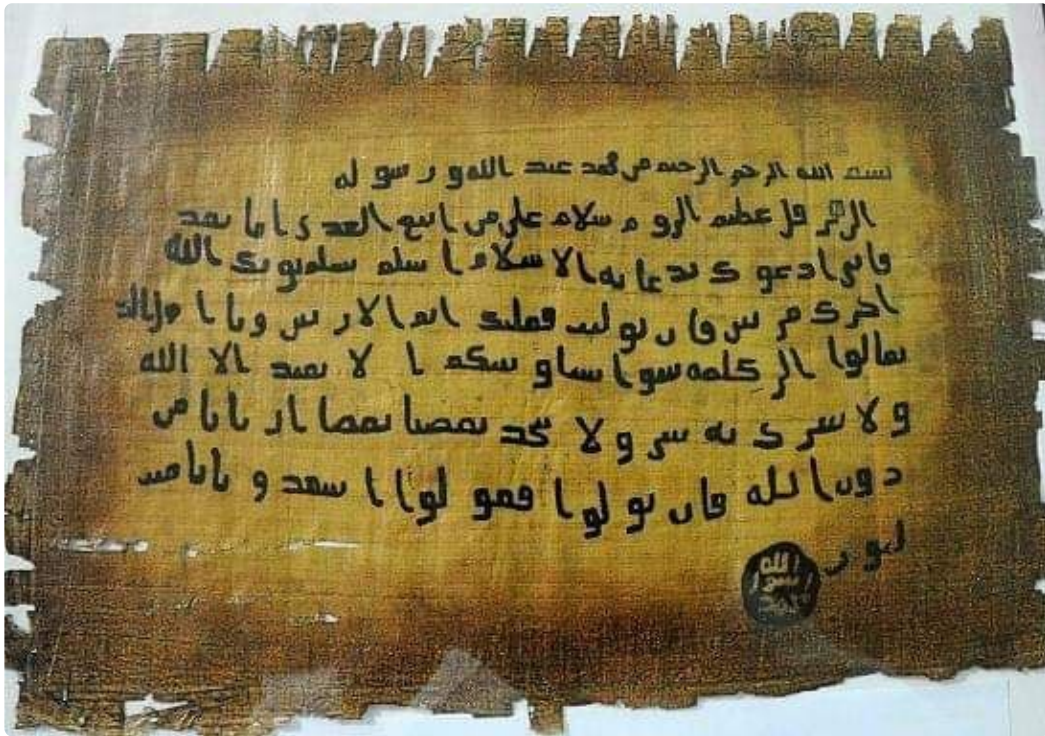 بسم الله الرحمن الرحيم من محمد عبد الله و رسوله
الى هرقل عظيم الروم سلام على من اتبع الهدى اما بعد
فانى ادعوك بدعايه الاسلام اسلم تسلم يوتك الله
اجرك مرتين فان توليت فعليك اثم الاريسين ويا اهل
تعالوا الى كلمه سوا بيننا وبينكم ا لا نعبد الا الله
ولا نشرك به شى ولا يتخذ بعضنا بعضا اربابا من
دون الله فان تولوا فقولوا اشهدوا بانا مس
لمون
الله
رسول
محمد